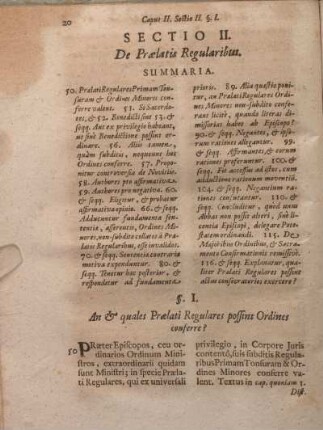 20 Caput II. Sectio II. §. I.
SECTIO II.
De Prælatis Regularibus.
SUMMARIA.
50. Prælati Regulares Primam Ton-
suram & Ordines Minores con-
ferre valent. 51. Si Sacerdo-
tes, & 52. Benedicti sint 53. &
seqq. Aut ex privilegio habeant,
ut sine Benedictione possint or-
dinare. 56. Aliis tamen,
quàm subditis, nequeunt hos
Ordines conferre. 57. Propo-
nitur controversia de Novitiis.
58. Authores pro affirmativa.
59. Authores pro negativa. 60.
& seqq. Exigitur, & probatur
affirmativa opinio. 66. &
Adducuntur fundamenta sen-
tentiæ, asserentis, Ordines Mi-
nores, non-subdito collatos à Præla-
tis Regularibus, esse invalidos.
70. & seqq. Sententia contraria
motiva expenduntur. 82. &
seqq. Tenetur hæc posterior, &
respondetur ad fundamenta
prioris. 89. Alia quæstio poni-
tur, an Prælati Regulares Ordi-
nes Minores non-subdito confe-
rant licitè, quando literas di-
missorias habet ab Episcopo?
90. & seqq. Negantes, & ipso-
rum rationes allegantur. 99.
& seqq. Affirmantes, & eorum
rationes proferuntur. 100. &
seqq. Fit accessus ad istos, cum
adductione rationum momenti.
104. & seqq. Negantium ra-
tiones enervantur. 110. &
seqq. Concluditur, quod unus
Abbas non possit alteri, sine li-
centia Episcopi, delegare Pote-
statem ordinandi. 115. De
Majoribus Ordinibus, & Sacra-
mento Confirmationis remissivè.
116. & seqq. Explanatur, qua-
liter Prælati Regulares possint
actum conservatoris exercere?
§. I.
An & quales Prælati Regulares possint Ordines
conferre?
50 PRæter Episcopos, ceu or-
dinarios Ordinum Mini-
stros, extraordinarii quidam
sunt Ministri; in specie Præla-
ti Regulares, qui ex universali
privilegio, in Corpore Juris
contento, suis subditis Regula-
ribus Primam Tonsuram & Or-
dines Minores conferre va-
lent. Textus in cap. quoniam 3.
Dist.